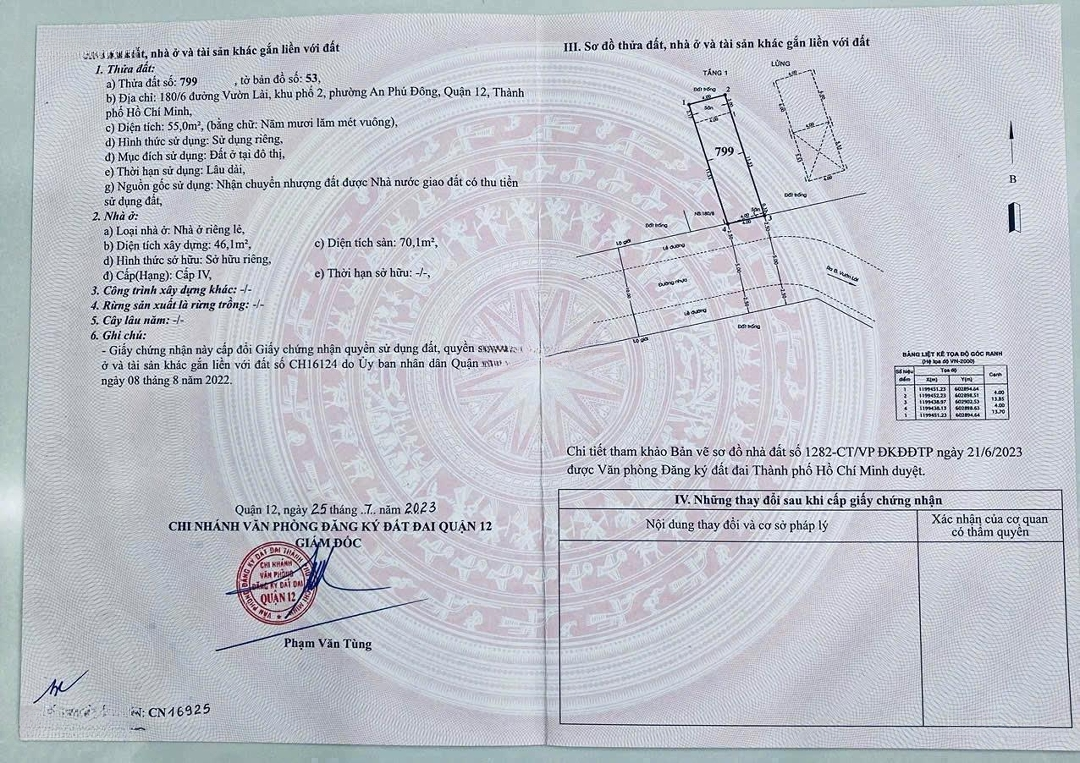 đất, nhà ở và tài sản khác gắn liền với đất
1. Thửa đất:
a) Thửa đất số: 799 , tờ bản đồ số: 53,
b) Địa chỉ: 180/6 đường Vườn Lài, khu phố 2, phường An Phú Đông, Quận 12, Thành
phố Hồ Chí Minh,
c) Diện tích: 55,0m², (bằng chữ: Năm mươi lăm mét vuông),
d) Hình thức sử dụng: Sử dụng riêng,
đ) Mục đích sử dụng: Đất ở tại đô thị,
e) Thời hạn sử dụng: Lâu dài,
g) Nguồn gốc sử dụng: Nhận chuyển nhượng đất được Nhà nước giao đất có thu tiền
sử dụng đất,
2. Nhà ở:
a) Loại nhà ở: Nhà ở riêng lẻ,
b) Diện tích xây dựng: 46,1m², c) Diện tích sàn: 70,1m²,
d) Hình thức sở hữu: Sở hữu riêng,
đ) Cấp(Hạng): Cấp IV, e) Thời hạn sở hữu: -/-,
3. Công trình xây dựng khác: -/-
4. Rừng sản xuất là rừng trồng: -/-
5. Cây lâu năm: -/-
6. Ghi chú:
- Giấy chứng nhận này cấp đổi Giấy chứng nhận quyền sử dụng đất, quyền
ở và tài sản khác gắn liền với đất số CH16124 do Ủy ban nhân dân Quận
ngày 08 tháng 8 năm 2022.
Quận 12, ngày 25 tháng .7. năm 2023
CHI NHÁNH VĂN PHÒNG ĐĂNG KÝ ĐẤT ĐAI QUẬN 12
GIÁM ĐỐC
VĂN PHÒNG ĐĂNG KÝ ĐẤT ĐAI THÀNH PHỐ HỒ CHÍ MINH
CHI NHÁNH
VĂN PHÒNG
ĐĂNG KÝ ĐẤT ĐAI
QUẬN 12
Phạm Văn Tùng
CN16925
III. Sơ đồ thửa đất, nhà ở và tài sản khác gắn liền với đất
TẦNG 1
LỬNG
Đất trống
1
2
4.00
Sân
4.00
799
4.00
4.00
B
Đất trống
NS 180/8
Sân
3
4
Đất trống
Lộ giới
Lề đường
Đường nhựa
10.00
5.00
5.00
2.50
2.50
Ra Đ. Vườn Lài
Lề đường
Lộ giới
Đất trống
BẢNG LIỆT KÊ TỌA ĐỘ GÓC RANH
(Hệ tọa độ VN-2000)
Số hiệu điểm Tọa độ Cạnh
X(m) Y(m)
1 1199451.23 602894.64
4.00
2 1199452.23 602898.51
13.85
3 1199438.97 602902.53
4.00
4 1199438.13 602898.63
13.70
1 1199451.23 602894.64
Chi tiết tham khảo Bản vẽ sơ đồ nhà đất số 1282-CT/VP ĐKĐĐTP ngày 21/6/2023
được Văn phòng Đăng ký đất đai Thành phố Hồ Chí Minh duyệt.
IV. Những thay đổi sau khi cấp giấy chứng nhận
Nội dung thay đổi và cơ sở pháp lý
Xác nhận của cơ quan
có thẩm quyền